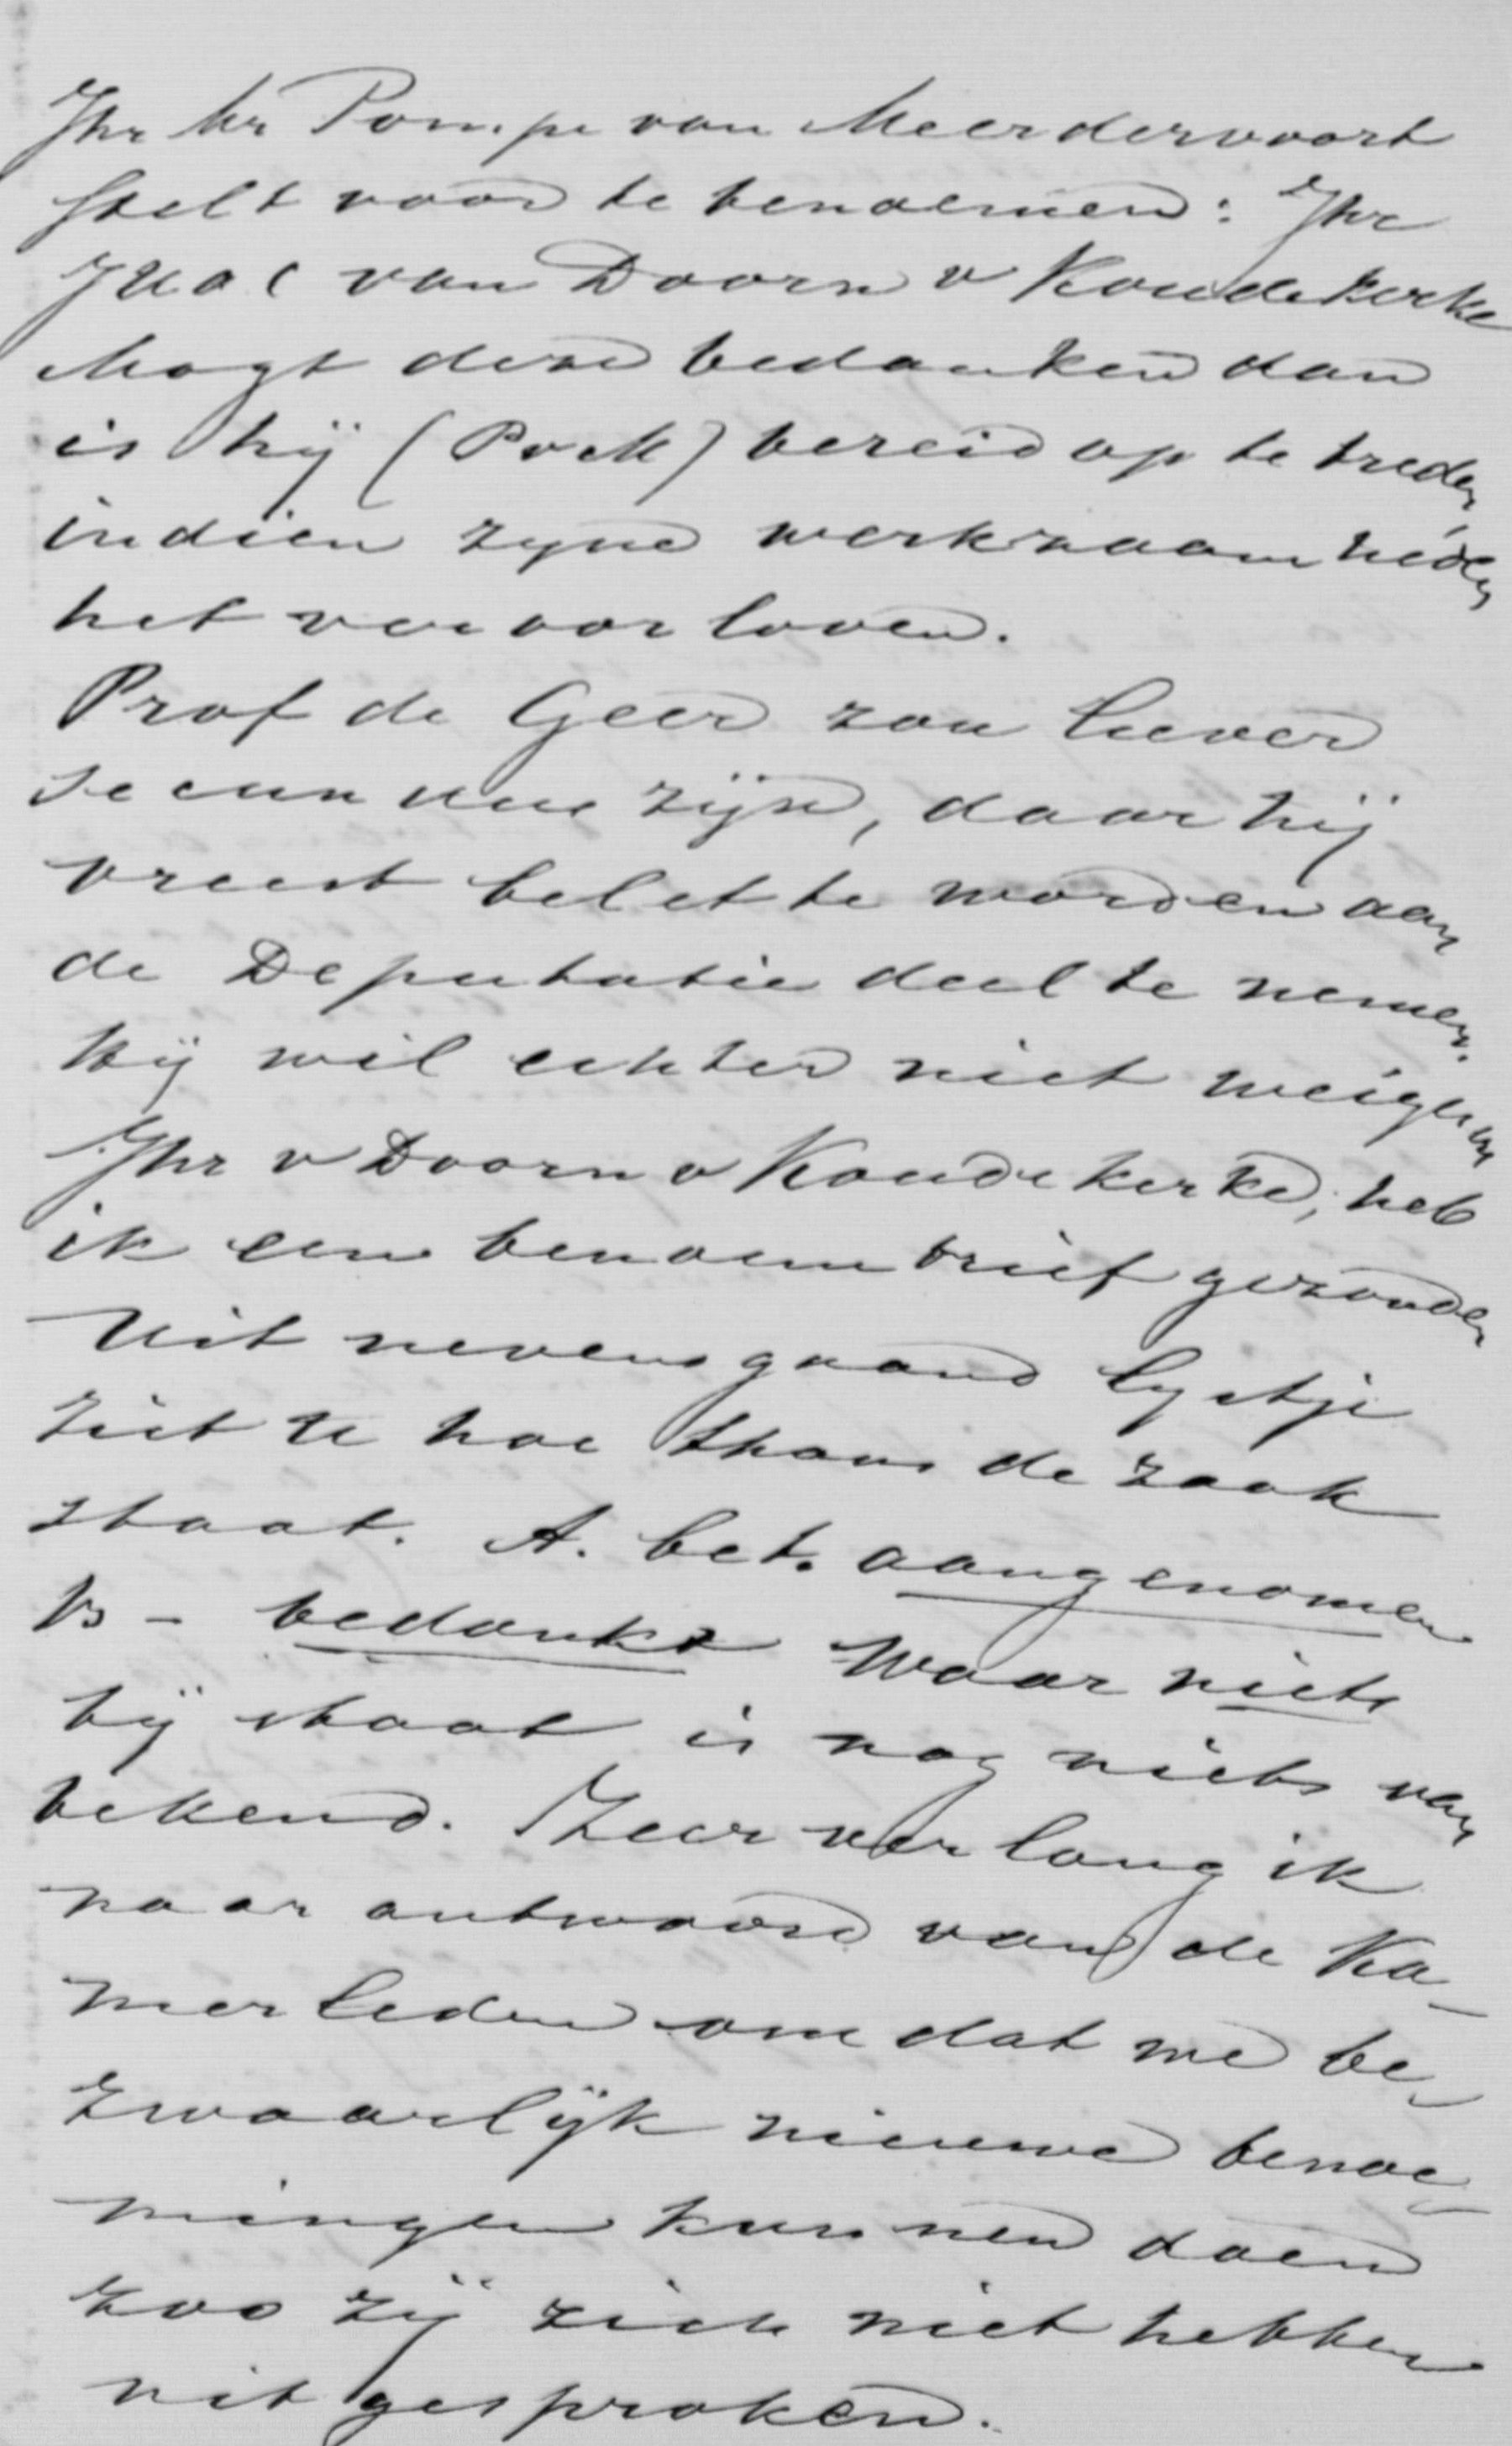 Jhr Mr Pompe van Meerdervoort
stelt voor te benoemen: Jhr
van Doorn v Koudekerke
Mogt deze bedanken dan
is hij (PvM) bereid op te treden,
indien zyne werkzaamheden
het veroorloven.
Prof de Geer zou liever
secundus zijn, daar hij
vreest belet te worden aan
de Deputatie deel te nemen.
Hij wil echter niet weigeren
Jhr v Doorn v Koudekerke, heb
ik een benoembrief gezonden
Uit nevensgaand lystje
ziet U hoe thans de zaak
staat. A. bet. aangenomen
B - bedankt Waar niets
bij staat is nog niets van
bekend. Zeer verlang ik
naar antwoord van de Ka-
merleden omdat we be-
zwaarlijk nieuwe benoe-
mingen kunnen doen
zoo zij zich niet hebben
uitgesproken.